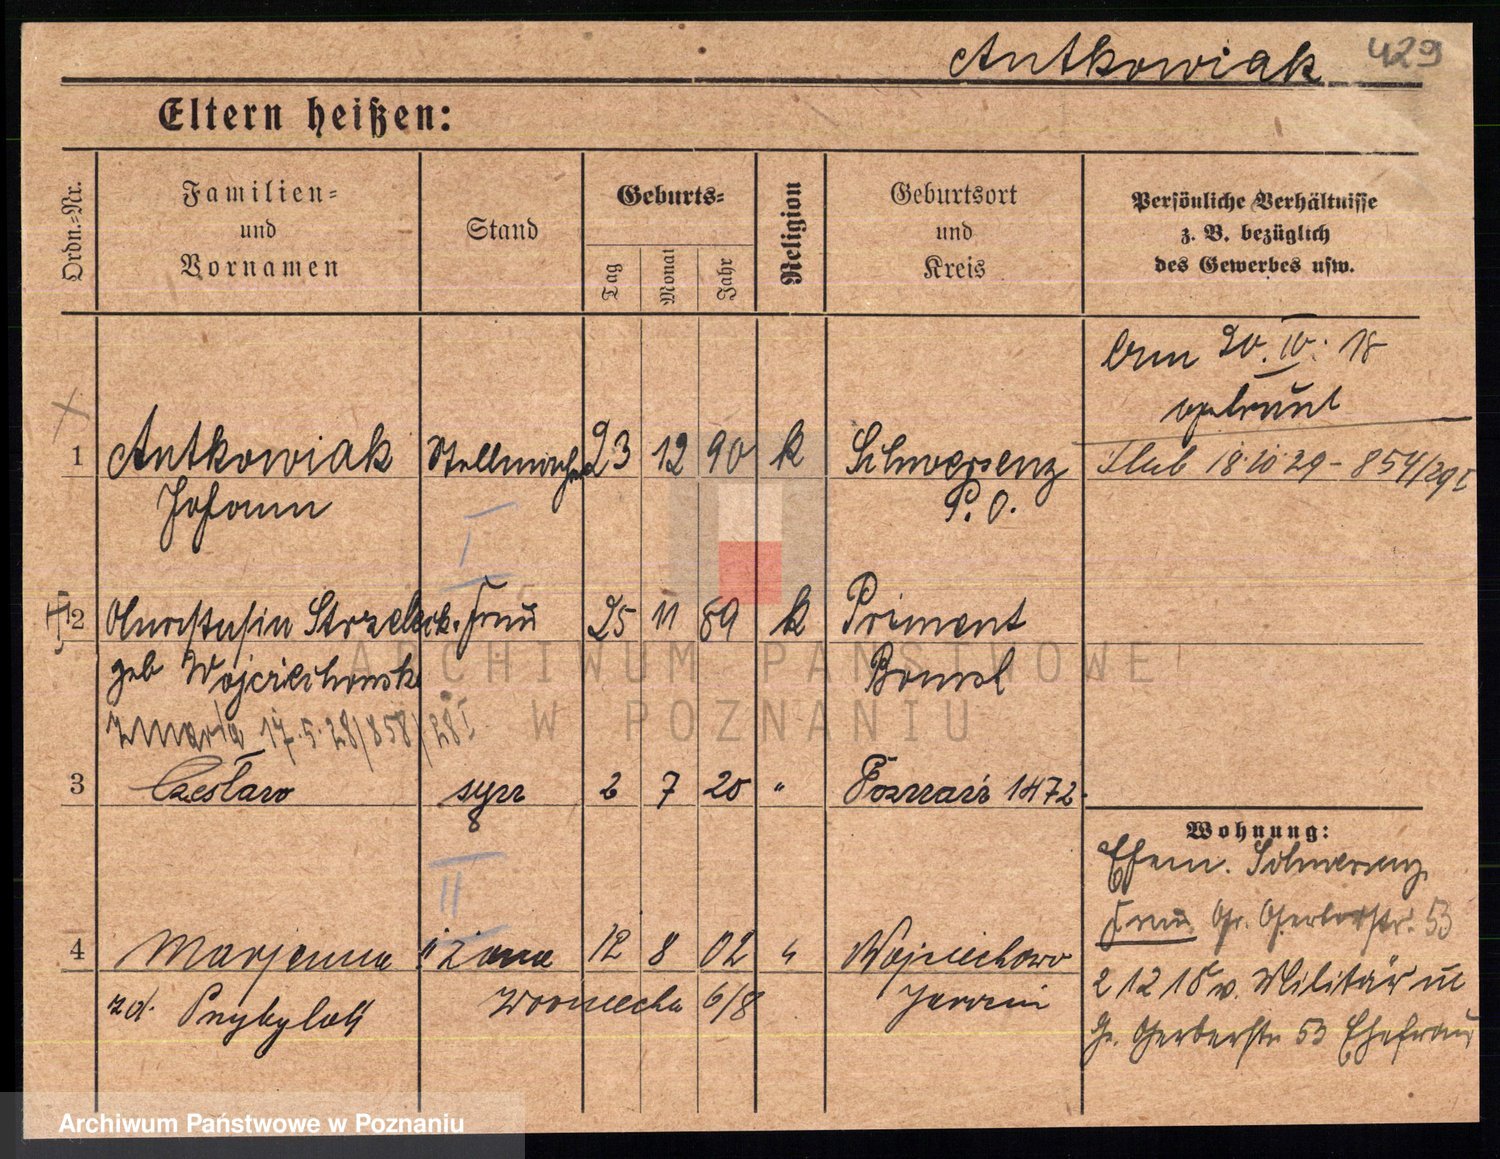 Antkowiak 429
Eltern heißen:
Ordn.-Nr.
Familien-
und
Vornamen
Stand
Geburts-
Tag
Monat
Jahr
Religion
Geburtsort
und
Kreis
Persönliche Verhältnisse
z. B. bezüglich
des Gewerbes usw.
Am 20. IV. 18
getraut
1 Antkowiak Stellmacher 23 12 90 k Schwersenz
Johann P. O.
Ślub 18.10.29 - 854/29 I
I
2 Anastasia Strzeleck. Frau 25 11 89 k Priment
geb Wojciechowsk Bomst
zmarła 17.5.28/858/28 I
3 Czesław syn 2 7 20 " Poznań 1472
II
4 Marjanna II żona 12 8 02 " Wojciechowo
zd. Przybylak 6/8 Jarocin
Wohnung:
Ehem. Schwersenz
Frau Gr. Gerberstr. 53
2 12 18 v. Militär
Gr. Gerberstr 53 Ehefrau
ARCHIWUM PAŃSTWOWE
W POZNANIU
Archiwum Państwowe w Poznaniu